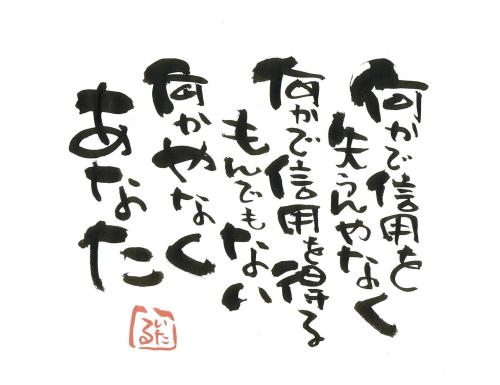 何かで信用を
失うんやなく
何かで信用を得る
もんでもない
何かやなく
あなた
いたる